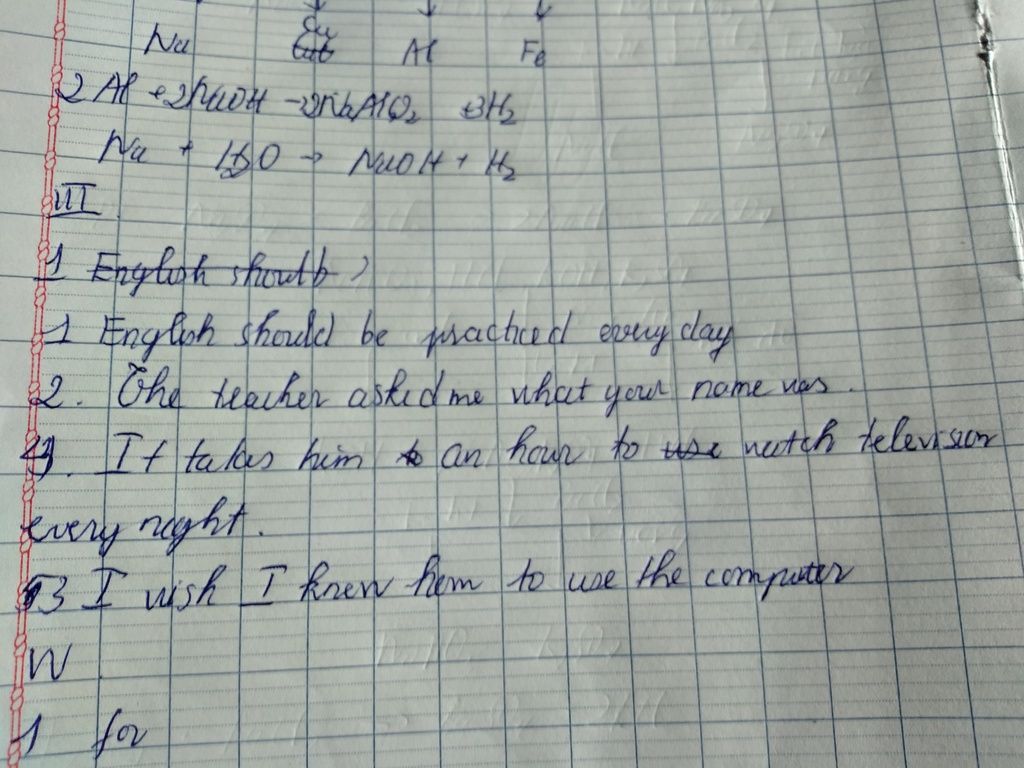 Na Cu Al Fe
2Al + 2NaOH → 2NaAlO2 + 3H2
Na + H2O → NaOH + H2
III
1 English shoutb
1 English should be practiced every day
2. The teacher asked me what your name was.
4. It takes him to an hour to use watch television
every night.
53 I wish I knew hem to use the computer
IV
1 for